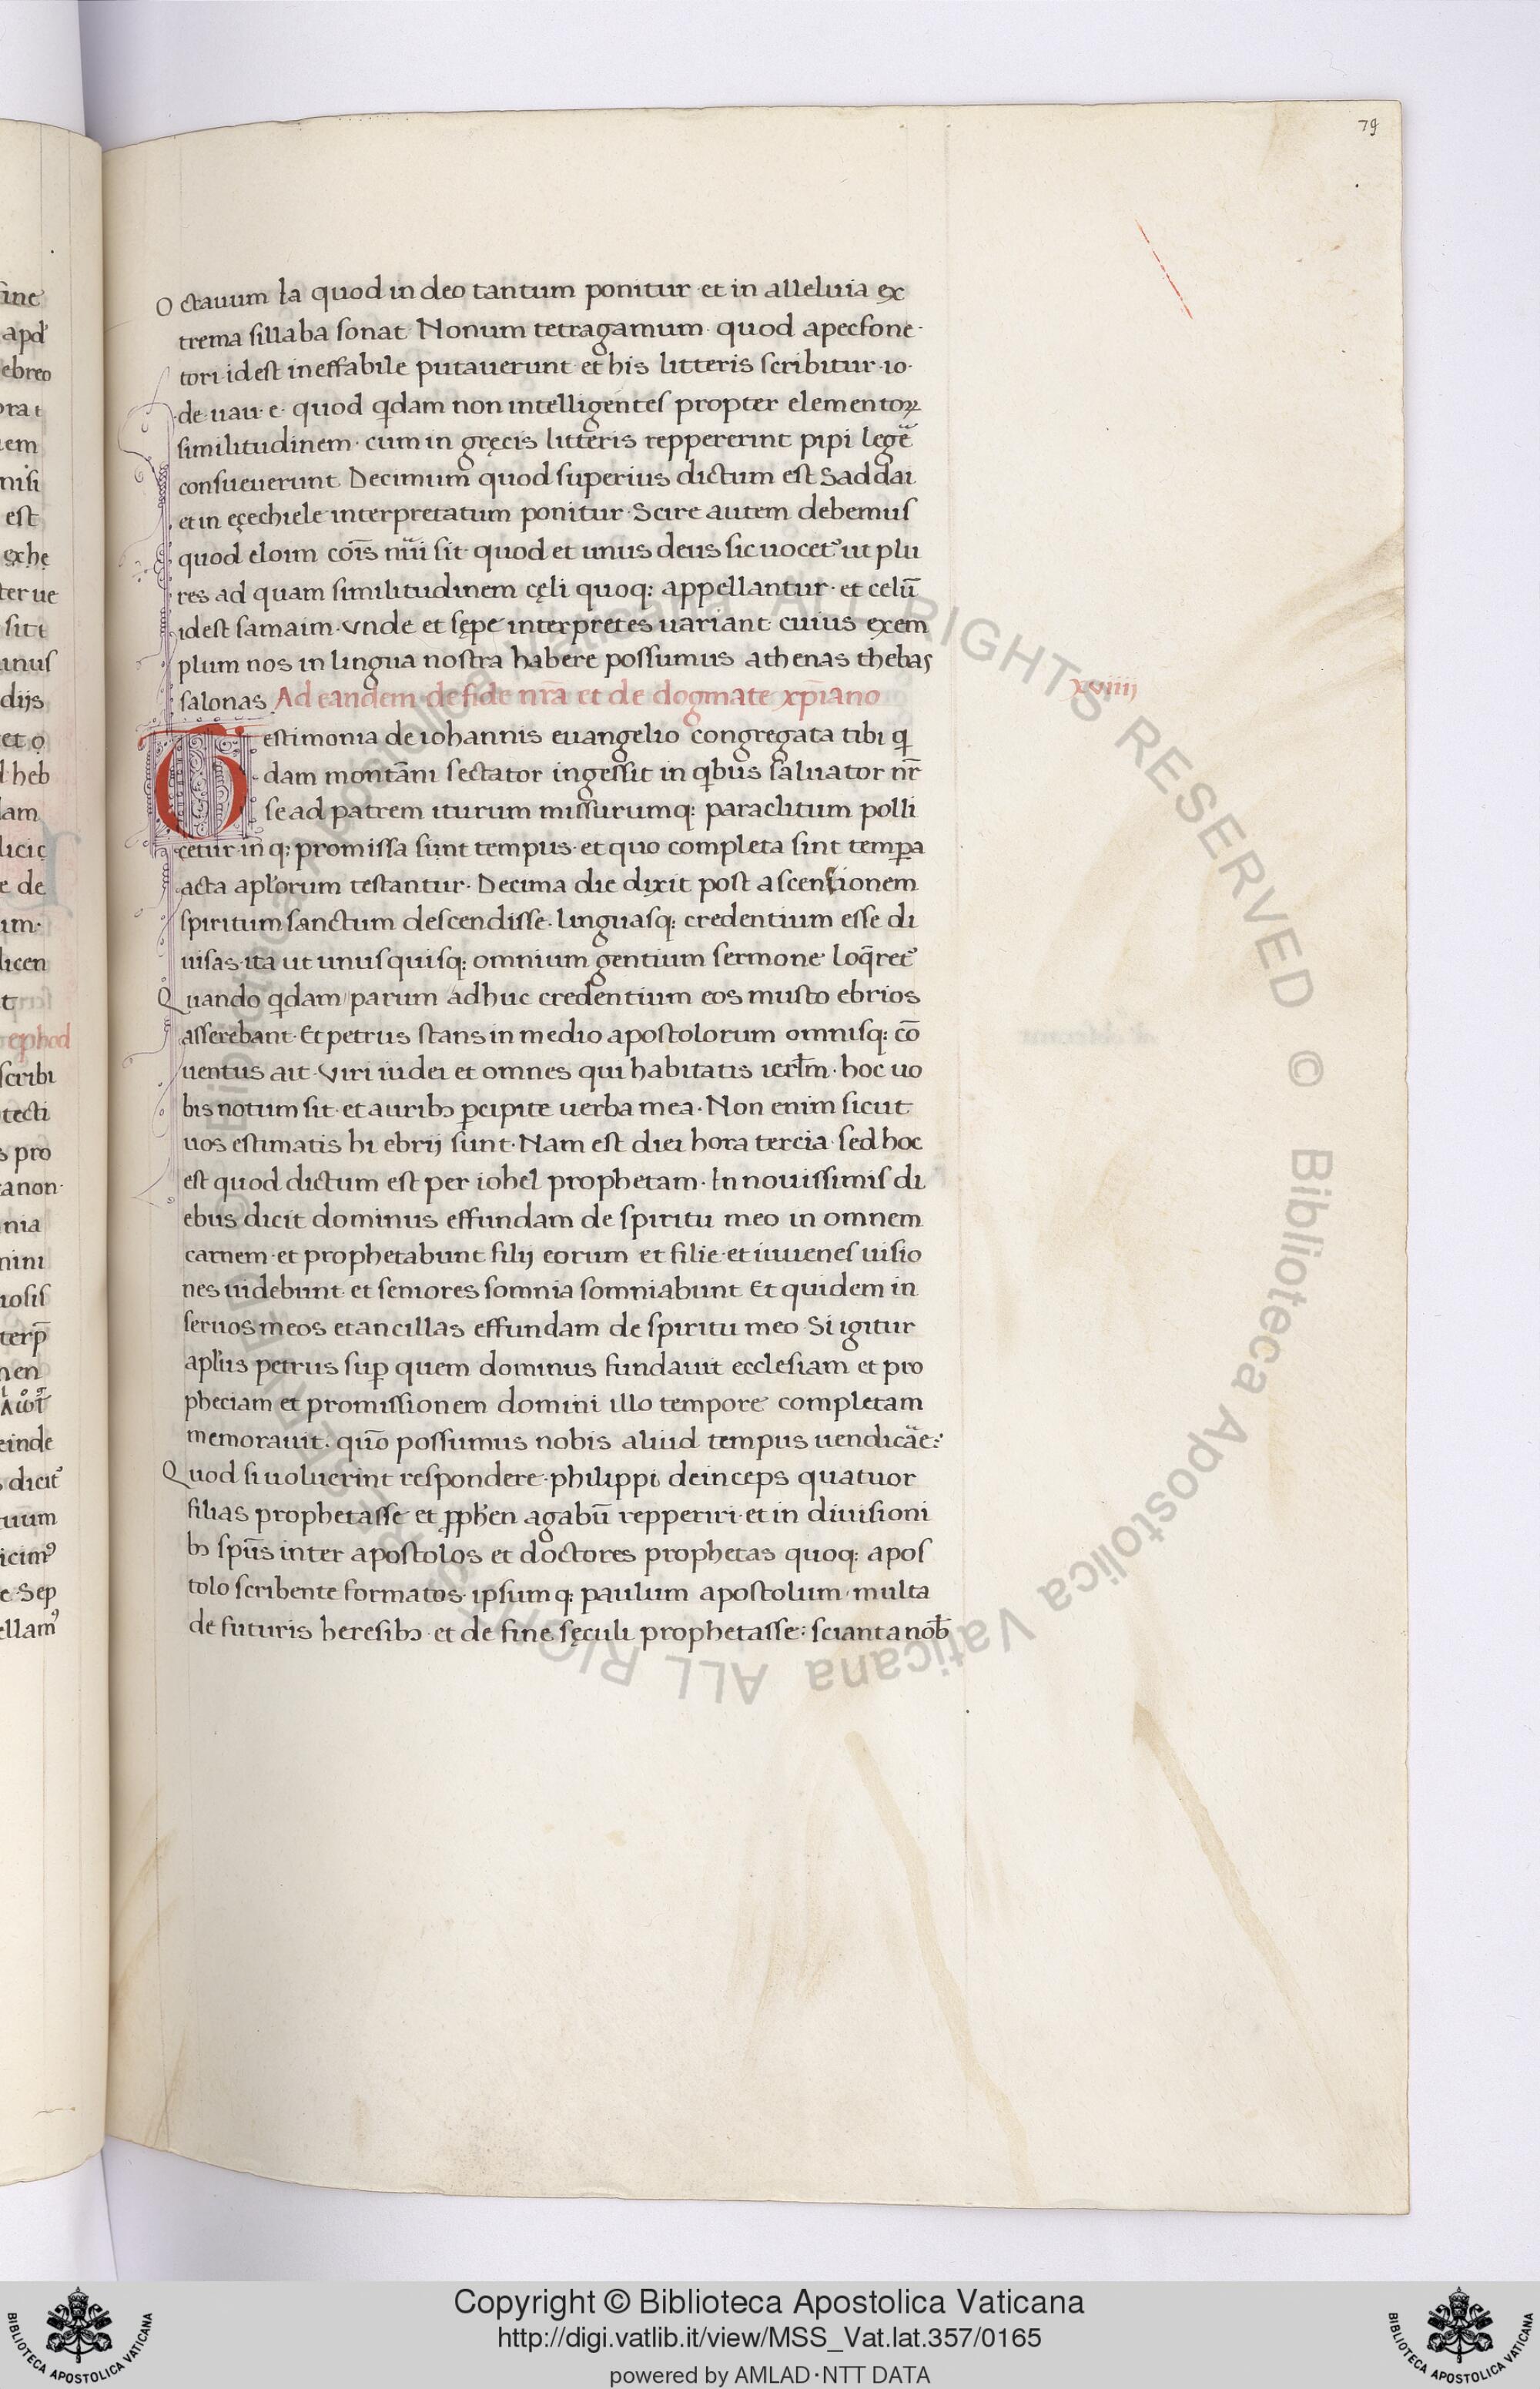 79
Octauum ła quod in deo tantum ponitur et in alleluia ex
trema sillaba sonat Nonum tetragamum quod apecfone
tori idest ineffabile putauerunt et his litteris scribitur io
de uau e quod qdam non intelligentes propter elementoꝝ
similitudinem cum in gręcis litteris reppererint pipi legē
consueuerunt Decimum quod superius dictum est Saddai
et in eçechiele interpretatum ponitur Scire autem debemus
quod eloim cōis nūi sit quod et unus deus sic uocet᷒ ut plu
res ad quam similitudinem cęli quoq: appellantur et celū
idest samaim vnde et sępe interpretes uariant cuius exem
plum nos in lingua nostra habere possumus athenas thebas
salonas Ad eandem de fide nr̄a et de dogmate xp̄iano
xviiij
Testimonia de iohannis euangelio congregata tibi q
dam montāni sectator ingessit in qbus saluator nr̄
se ad patrem iturum missurumq: paraclitum polli
cetur in q: promissa sunt tempus et quo completa sint temꝑa
acta apl'orum testantur Decima die dixit post ascensionem
spiritum sanctum descendisse linguasq: credentium esse di
uisas ita ut unusquisq: omnium gentium sermone loq̄ret᷒
Quando qdam parum adhuc credentium eos musto ebrios
asserebant Et petrus stans in medio apostolorum omnisq: cō
uentus ait Viri iudei et omnes qui habitatis ierl̄m hoc uo
bis notum sit et auribꝫ ꝑcipite uerba mea Non enim sicut
uos estimatis hi ebrij sunt Nam est diei hora tercia sed hoc
est quod dictum est per iohel prophetam In nouissimis di
ebus dicit dominus effundam de spiritu meo in omnem
carnem et prophetabunt filij eorum et filie et iuuenes uisio
nes uidebunt et seniores somnia somniabunt Et quidem in
seruos meos et ancillas effundam de spiritu meo Si igitur
apl'us petrus suꝑ quem dominus fundauit ecclesiam et pro
pheciam et promissionem domini illo tempore completam
memorauit quō possumus nobis aliud tempus uendicāe:
Quod si uoluerint respondere philippi deinceps quatuor
filias prophetasse et ꝓph'en agabū repperiri et in diuisioni
bꝫ spūs inter apostolos et doctores prophetas quoq: apos
tolo scribente formatos ipsumq: paulum apostolum multa
de futuris heresibꝫ et de fine sęculi prophetasse: sciant a nob̄
ine
apd'
ebreo
orat
em
nisi
est
exhę
ter ue
sit t
unus
dijs
et o
heb
lam
licic
e de
um
licen
t
ephod
scribi
tecti
s pro
anon
nia
nini
iosis
terp̄
nen
einde
dicit᷒
uum
icim᷒
e Sep
ellam᷒
© Biblioteca Apostolica Vaticana ALL RIGHTS RESERVED © Biblioteca Apostolica Vaticana ALL RIGHTS RESERVED
Copyright © Biblioteca Apostolica Vaticana
http://digi.vatlib.it/view/MSS_Vat.lat.357/0165
powered by AMLAD·NTT DATA
BIBLIOTECA APOSTOLICA VATICANA
BIBLIOTECA APOSTOLICA VATICANA